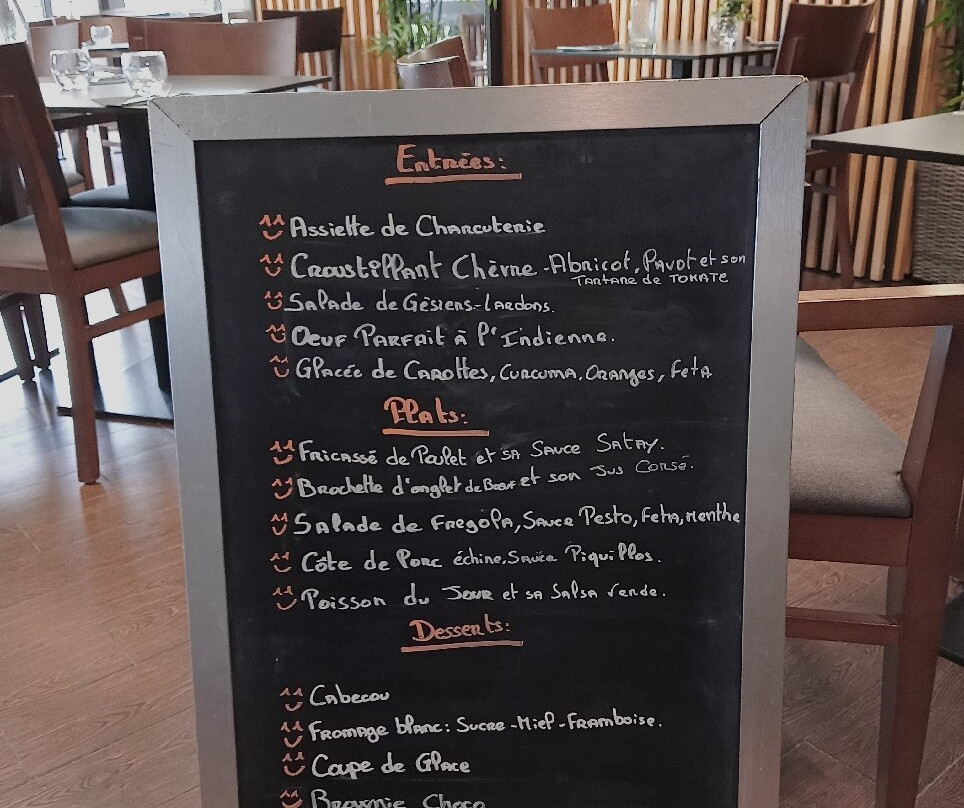 Entrées:
Assiette de Charcuterie
Croustillant Chèvre - Abricot, Pavot et son
Tartare de TOMATE
Salade de Gésiers - Lardons.
Oeuf Parfait à l'Indienne.
Glacée de Carottes, Curcuma, Oranges, Feta
Plats:
Fricassé de Poulet et sa Sauce Satay.
Brochette d'onglet de Boeuf et son Jus Corsé.
Salade de Fregola, Sauce Pesto, Feta, Menthe
Côte de Porc échine, Sauce Piquillos.
Poisson du Jour et sa Salsa Verde.
Desserts:
Cabecou
Fromage blanc: Sucre - Miel - Framboise.
Coupe de Glace
Brownie Choco